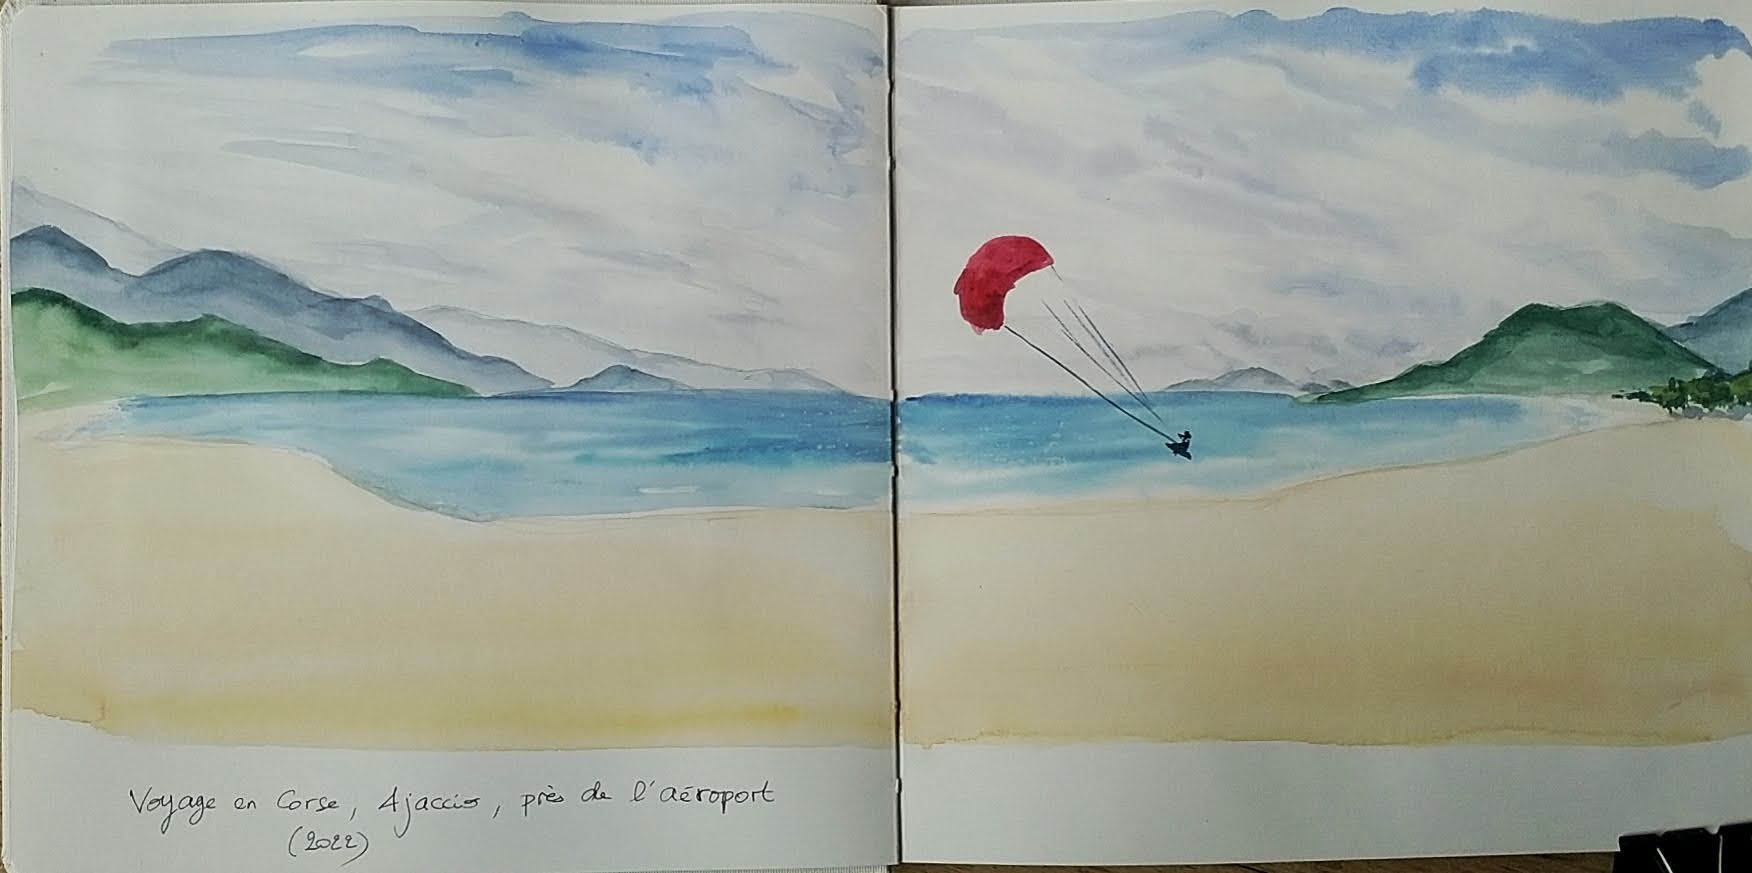 Voyage en Corse, Ajaccio, près de l'aéroport
(2022)